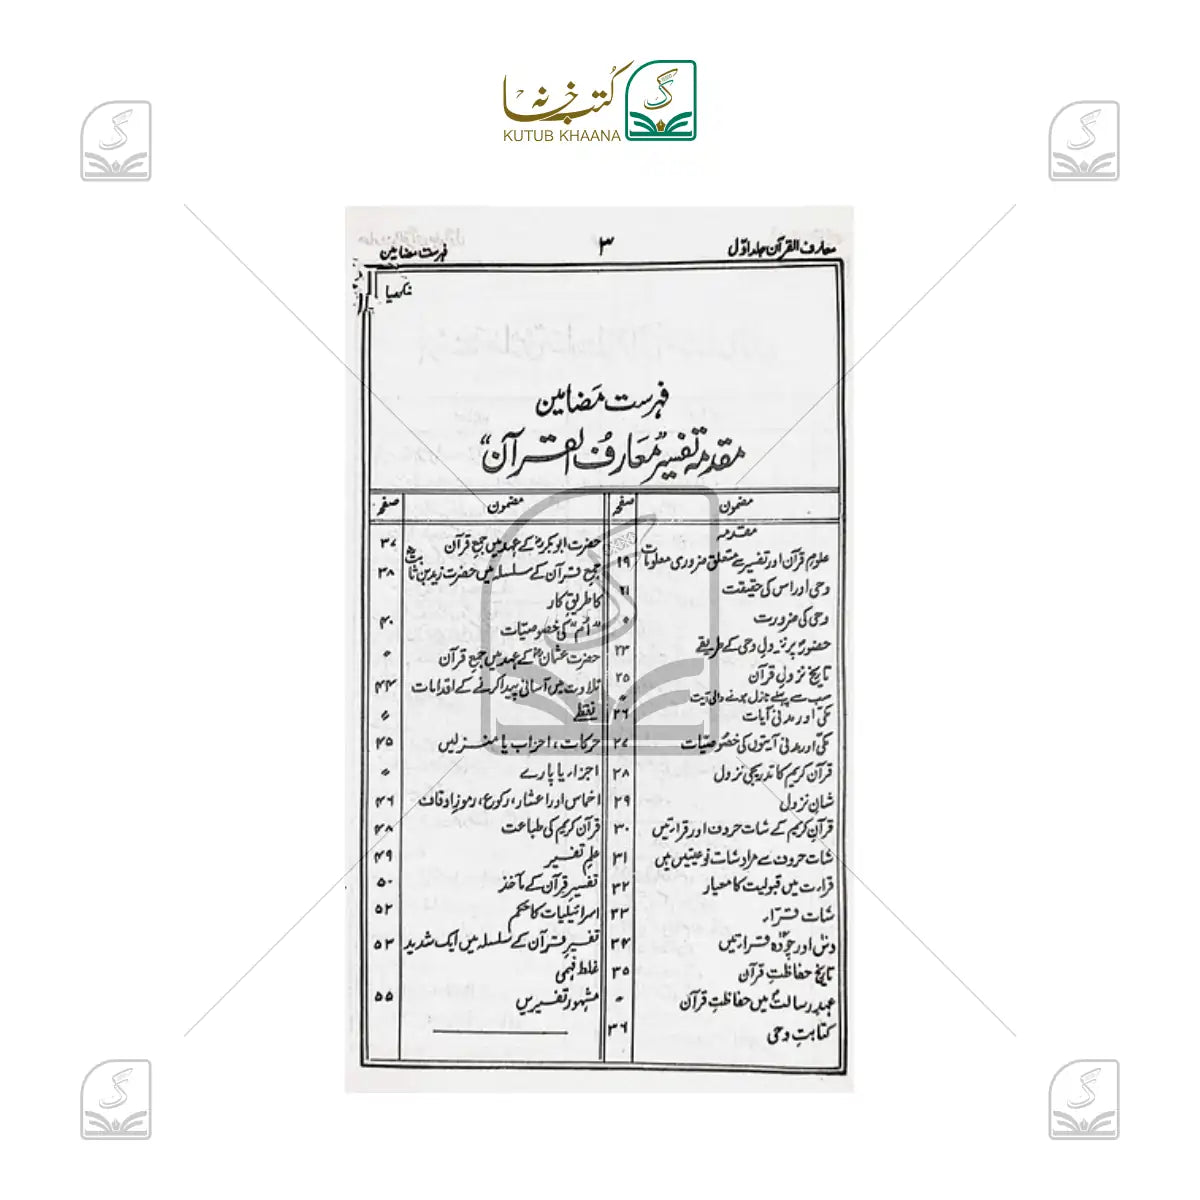 کتب خانہ
KUTUB KHAANA
معارف القرآن جلد اوّل
۳
فہرست مضامین
فہرست مضامین
مقدمہ تفسیر ”معارف القرآن“
مضمون
صفحہ
مقدمہ
علوم قرآن اور تفسیر سے متعلق ضروری معلومات ۱۹
وحی اور اس کی حقیقت ۲۱
وحی کی ضرورت ״
حضورؐ پر نزولِ وحی کے طریقے ۲۳
تاریخ نزولِ قرآن ۲۵
سب سے پہلے نازل ہونے والی آیت ״
مکّی اور مدنی آیات ۲۶
مکّی اور مدنی آیتوں کی خصوصیّات ۲۷
قرآن کریم کا تدریجی نزول ۲۸
شانِ نزول ۲۹
قرآن کریم کے سات حروف اور قرارتیں ۳۰
سات حروف سے مراد سات نوعیتیں ہیں ۳۱
قرارت میں قبولیت کا معیار ۳۲
سات قرّار ۳۳
دس اور چودہ قرارتیں ۳۴
تاریخ حفاظتِ قرآن ۳۵
عہدِ رسالتؐ میں حفاظتِ قرآن ״
کتابتِ وحی ۳۶
مضمون
صفحہ
حضرت ابوبکرؓ کے عہد میں جمع قرآن ۳۷
جمع قرآن کے سلسلہ میں حضرت زید بن ثابتؓ ۳۸
کا طریقِ کار
”اُم“ کی خصوصیّات ۴۰
حضرت عثمانؓ کے عہد میں جمع قرآن ״
تلاوت میں آسانی پیدا کرنے کے اقدامات ۴۴
نقطے ״
حرکات، احزاب یا منزلیں ۴۵
اجزار یا پارے ״
اخماس اور اعشار، رکوع، رموزِ اوقاف ۴۶
قرآن کریم کی طباعت ۴۸
علمِ تفسیر ۴۹
تفسیرِ قرآن کے مآخذ ۵۰
اسرائیلیات کا حکم ۵۲
تفسیرِ قرآن کے سلسلہ میں ایک شدید ۵۳
غلط فہمی
مشہور تفسیریں ۵۵